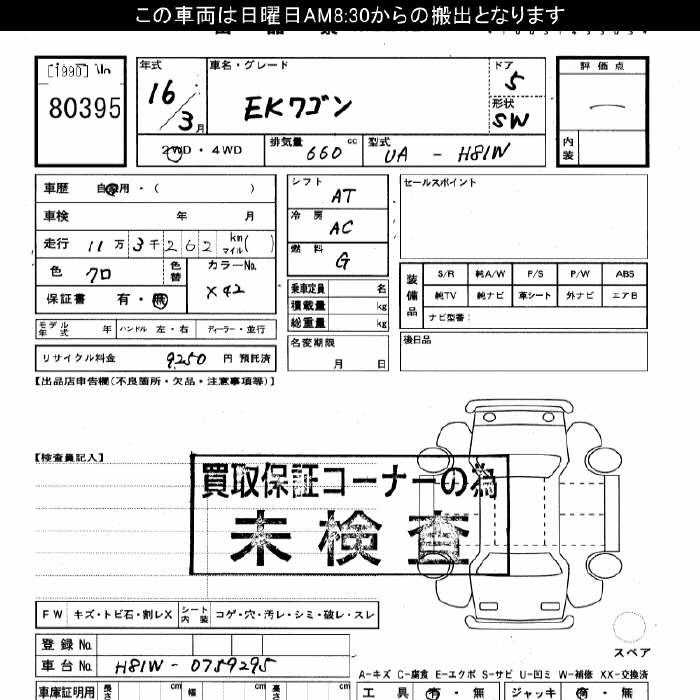 この車両は日曜日AM8:30からの搬出となります
80395
年式
16
3月
車名・グレード
EKワゴン
ドア
5
形状
SW
評価点
内装
2WD・4WD
排気量
660 cc
型式
UA - H81W
車歴 自家用・( )
車検 年 月
走行 11万3千262 km マイル( )
色 クロ
色替
カラーNo.
X42
保証書 有・無
モデル年式 年 ハンドル 左・右 ディーラー・並行
リサイクル料金 9250 円 預託済
シフト
AT
冷房
AC
燃料
G
乗車定員 名
積載量 kg
総重量 kg
名変期限
月 日
セールスポイント
装備品
S/R 純A/W P/S P/W ABS
純TV 純ナビ 革シート 外ナビ エアB
ナビ型番:
後日品
【出品店申告欄(不良箇所・欠品・注意事項等)】
【検査員記入】
買取保証コーナーの為
未検査
FW キズ・トビ石・割レX シート内装 コゲ・穴・汚レ・シミ・破レ・スレ
スペア
登録No.
車台No. H81W - 0759295
A-キズ C-腐食 E-エクボ S-サビ U-凹ミ W-補修 XX-交換済
車庫証明用 長さ cm 幅 cm 高さ cm
工具 有・無 ジャッキ 有・無